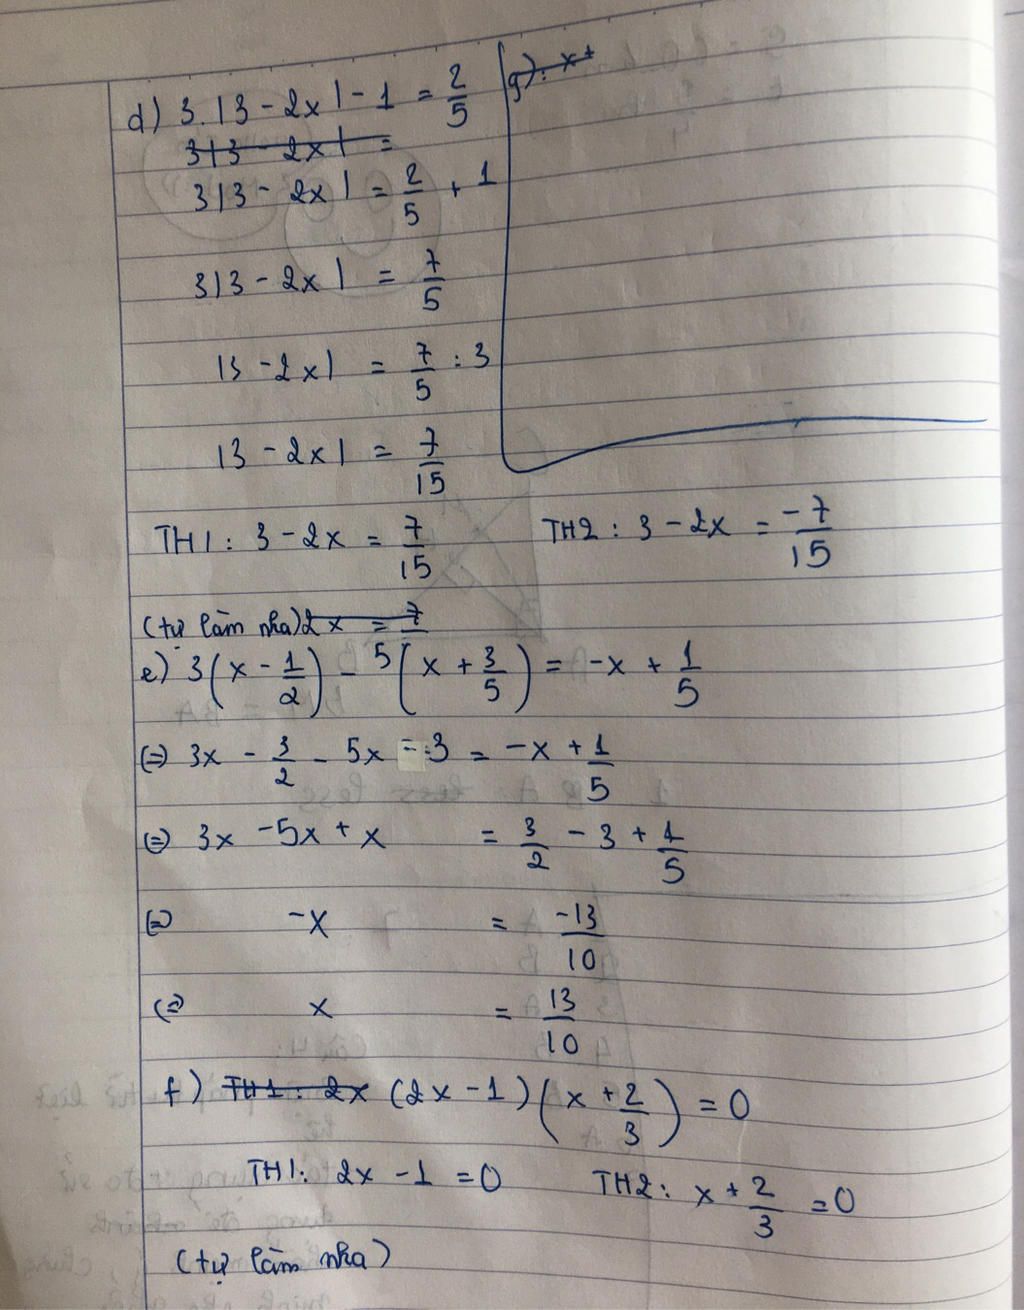 d) 3.|3 - 2x| - 1 = 2/5
g): x +
3|3 - 2x| =
3|3 - 2x| = 2/5 + 1
3|3 - 2x| = 7/5
|3 - 2x| = 7/5 : 3
|3 - 2x| = 7/15
TH1: 3 - 2x = 7/15 TH2: 3 - 2x = -7/15
(tự làm nha) 2x = 7
e) 3(x - 1/2) - 5(x + 3/5) = -x + 1/5
(=) 3x - 3/2 - 5x - 3 = -x + 1/5
(=) 3x - 5x + x = 3/2 - 3 + 1/5
(=) -x = -13/10
(=) x = 13/10
f) TH1: 2x (2x - 1)(x + 2/3) = 0
TH1: 2x - 1 = 0 TH2: x + 2/3 = 0
(tự làm nha)